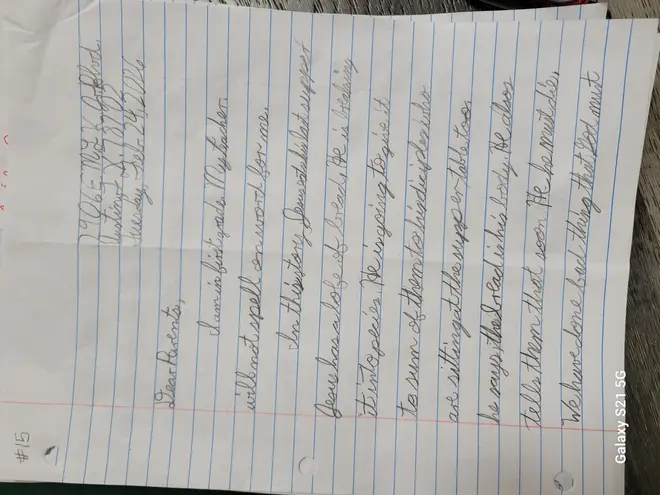 #15
Tuesday, Feb 24, 2026
Dear Parents,
I am in first grade. My teacher
will not spell on word for me.
In this story, Jesus eats his last suppest
Jesus has a lofe of bread. He is breaking
it into pecies. He is going to give it
to sum of them to his disiples who
are sitting at the supper table too
he says the bread is his body. He also
tells them that soon He he must die,
We have done bad thing that God must
Galaxy S21 5G